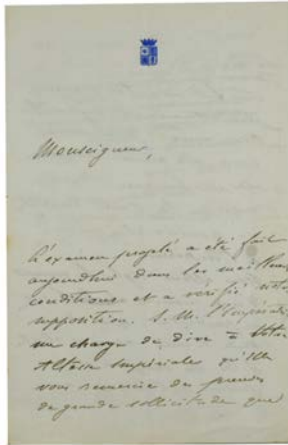 Monseigneur,
L'examen projeté a été fait
aujourdhui dans les meilleures
conditions et a vérifié notre
supposition. S. M. l'Impératrice
me charge de dire à Votre
Altesse Impériale qu'Elle
vous remercie des preuves
de grande sollicitude que